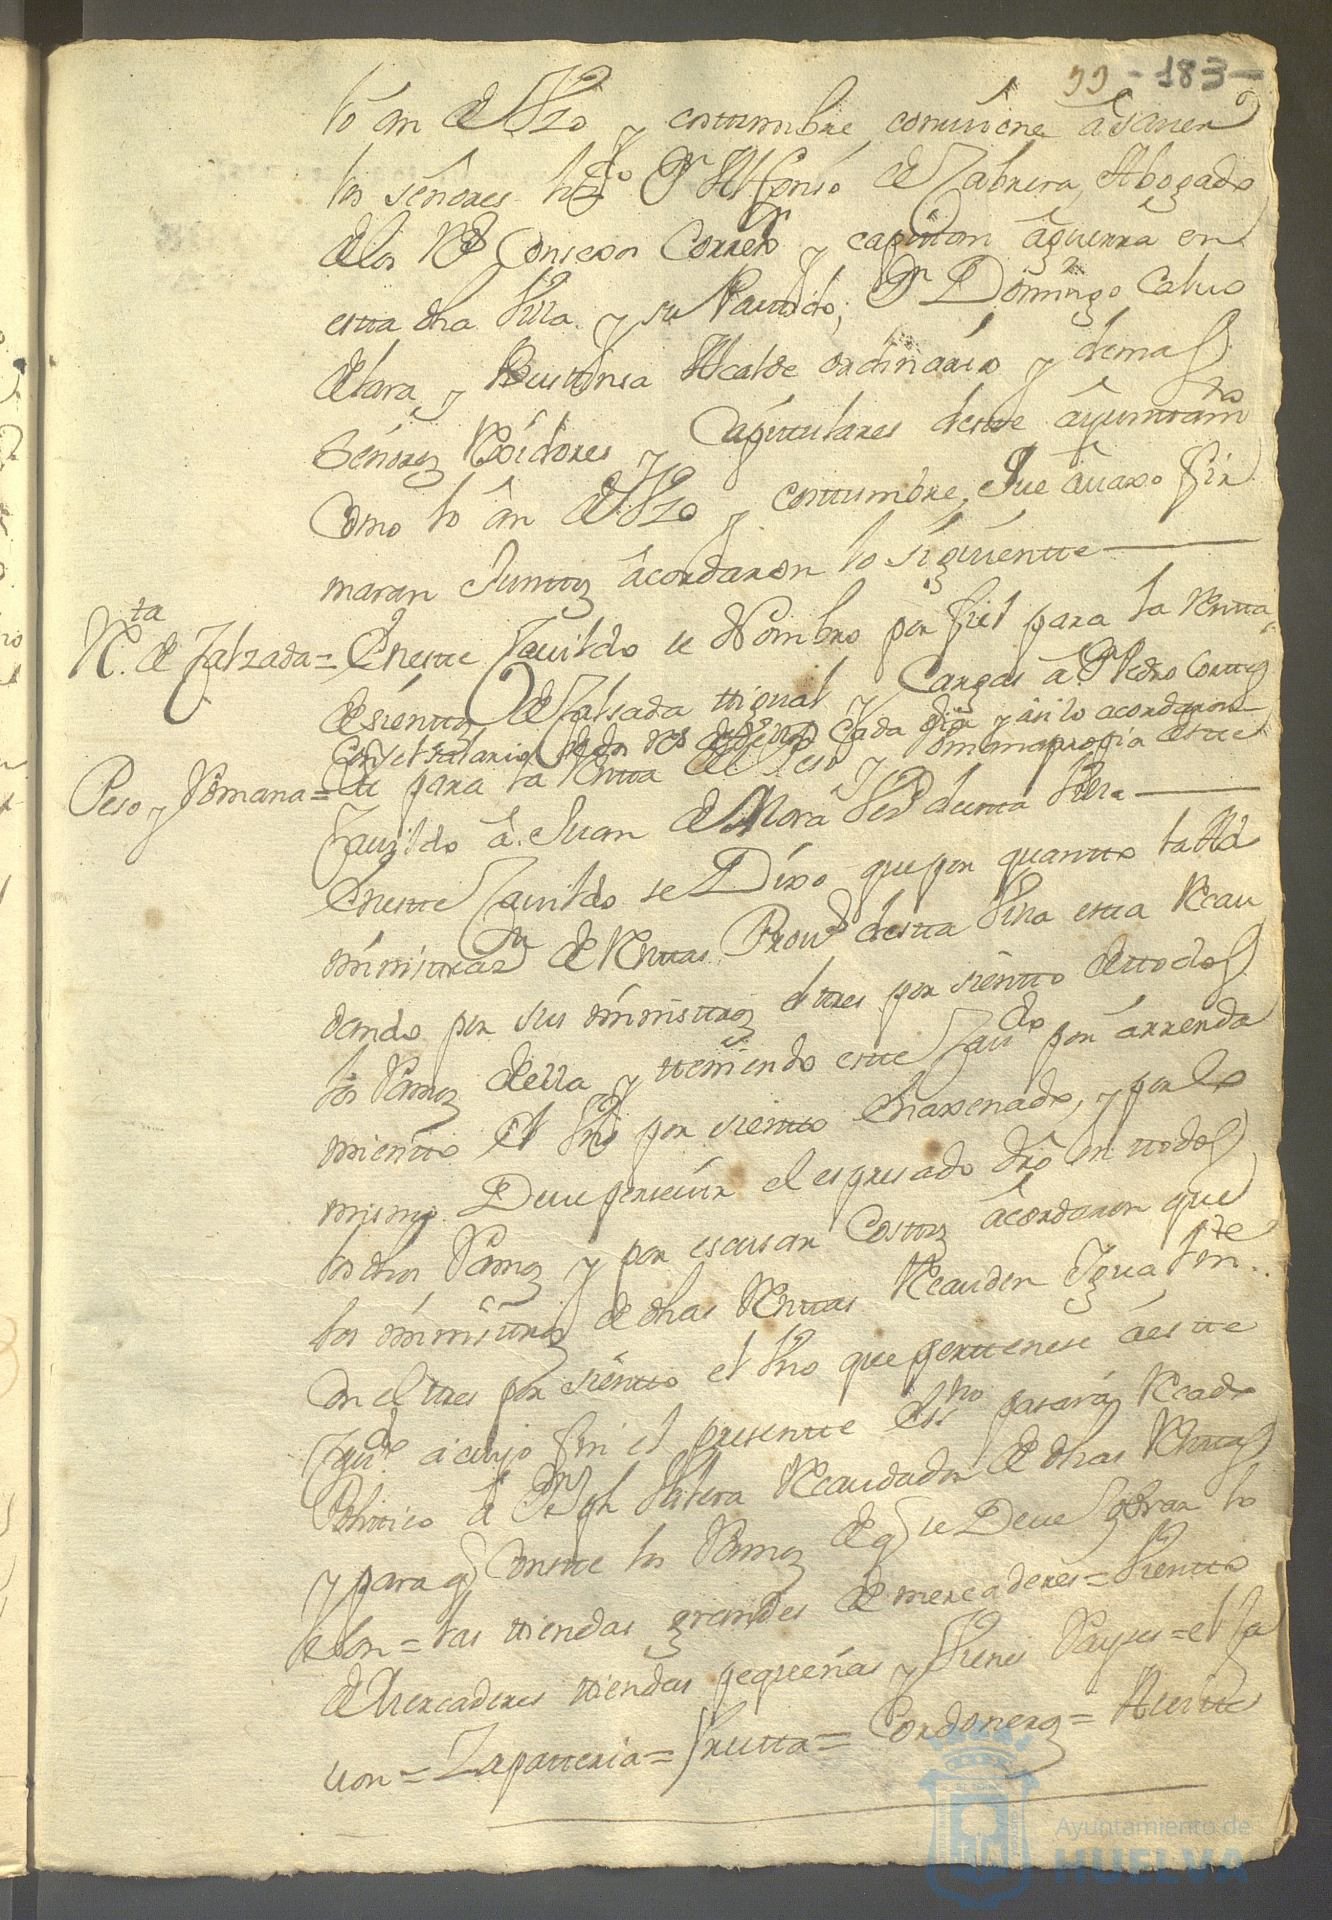 99 - 183 -
lo an de Vzo y costumbre conuiene â sauer
los señores liz.do Dn Alfonso de Cabrera Abogado
de los Rs Consexos Correxor y capitan âguerra en
esta dha Villa y su Partido, Dn Domingo Caluo
de lara y Bustinsa Alcalde ordinario y demas
Señores Rexidores y Capitulares deste âyuntam.to
Como lo an de Vzo y costtumbre, que âuaxo fir
maran Junttos âcordaron lo siguientte
R.ta de Calzada = En estte Cauildo se Nombro por fiel para la Rentta
de sienttos de Calsada ttigual y Cargas â Dn Pedro Corttes
Con el salario de dos rs de vellon cada dia y asi lo acordaron
Peso y Romana = Yt para la Rentta del Peso y Romana propia destte
Cauildo â Juan de Mora Vez.o desta Villa
En estte Cauildo se Dixo que por quantto la Ad
ministraz.n de Renttas Prou.s destta Villa esta Recau
dando por sus ministros el tres por sientto de ttodos
los Ramos della y tteniendo estte Cau.do por ârrenda
mientto el Vno por sientto Enaxenado, y por lo
mismo Deue perseuir el espresado dro en ttodos
los dhos Ramos y por escusar Costos âcordaron que
los ministros de dhas Renttas Recauden Ygualm.te
con el tres por sientto el Vno que perttenese â estte
Cau.do a cuyo fin el presentte ess.no pasará Recado
Polittico â Dn Jph Valera Recaudador de dhas Renttas
y para q Constte los Ramos de q se Deue Cobrar lo
es son = las ttiendas grandes de mercaderes = Vientto
de Mercaderes ttiendas pequeñas y Vienes Rayses = el Ja
uon = Zapatteria = frutta = Cordoneros = Aseitte
Ayuntamiento de
HUELVA